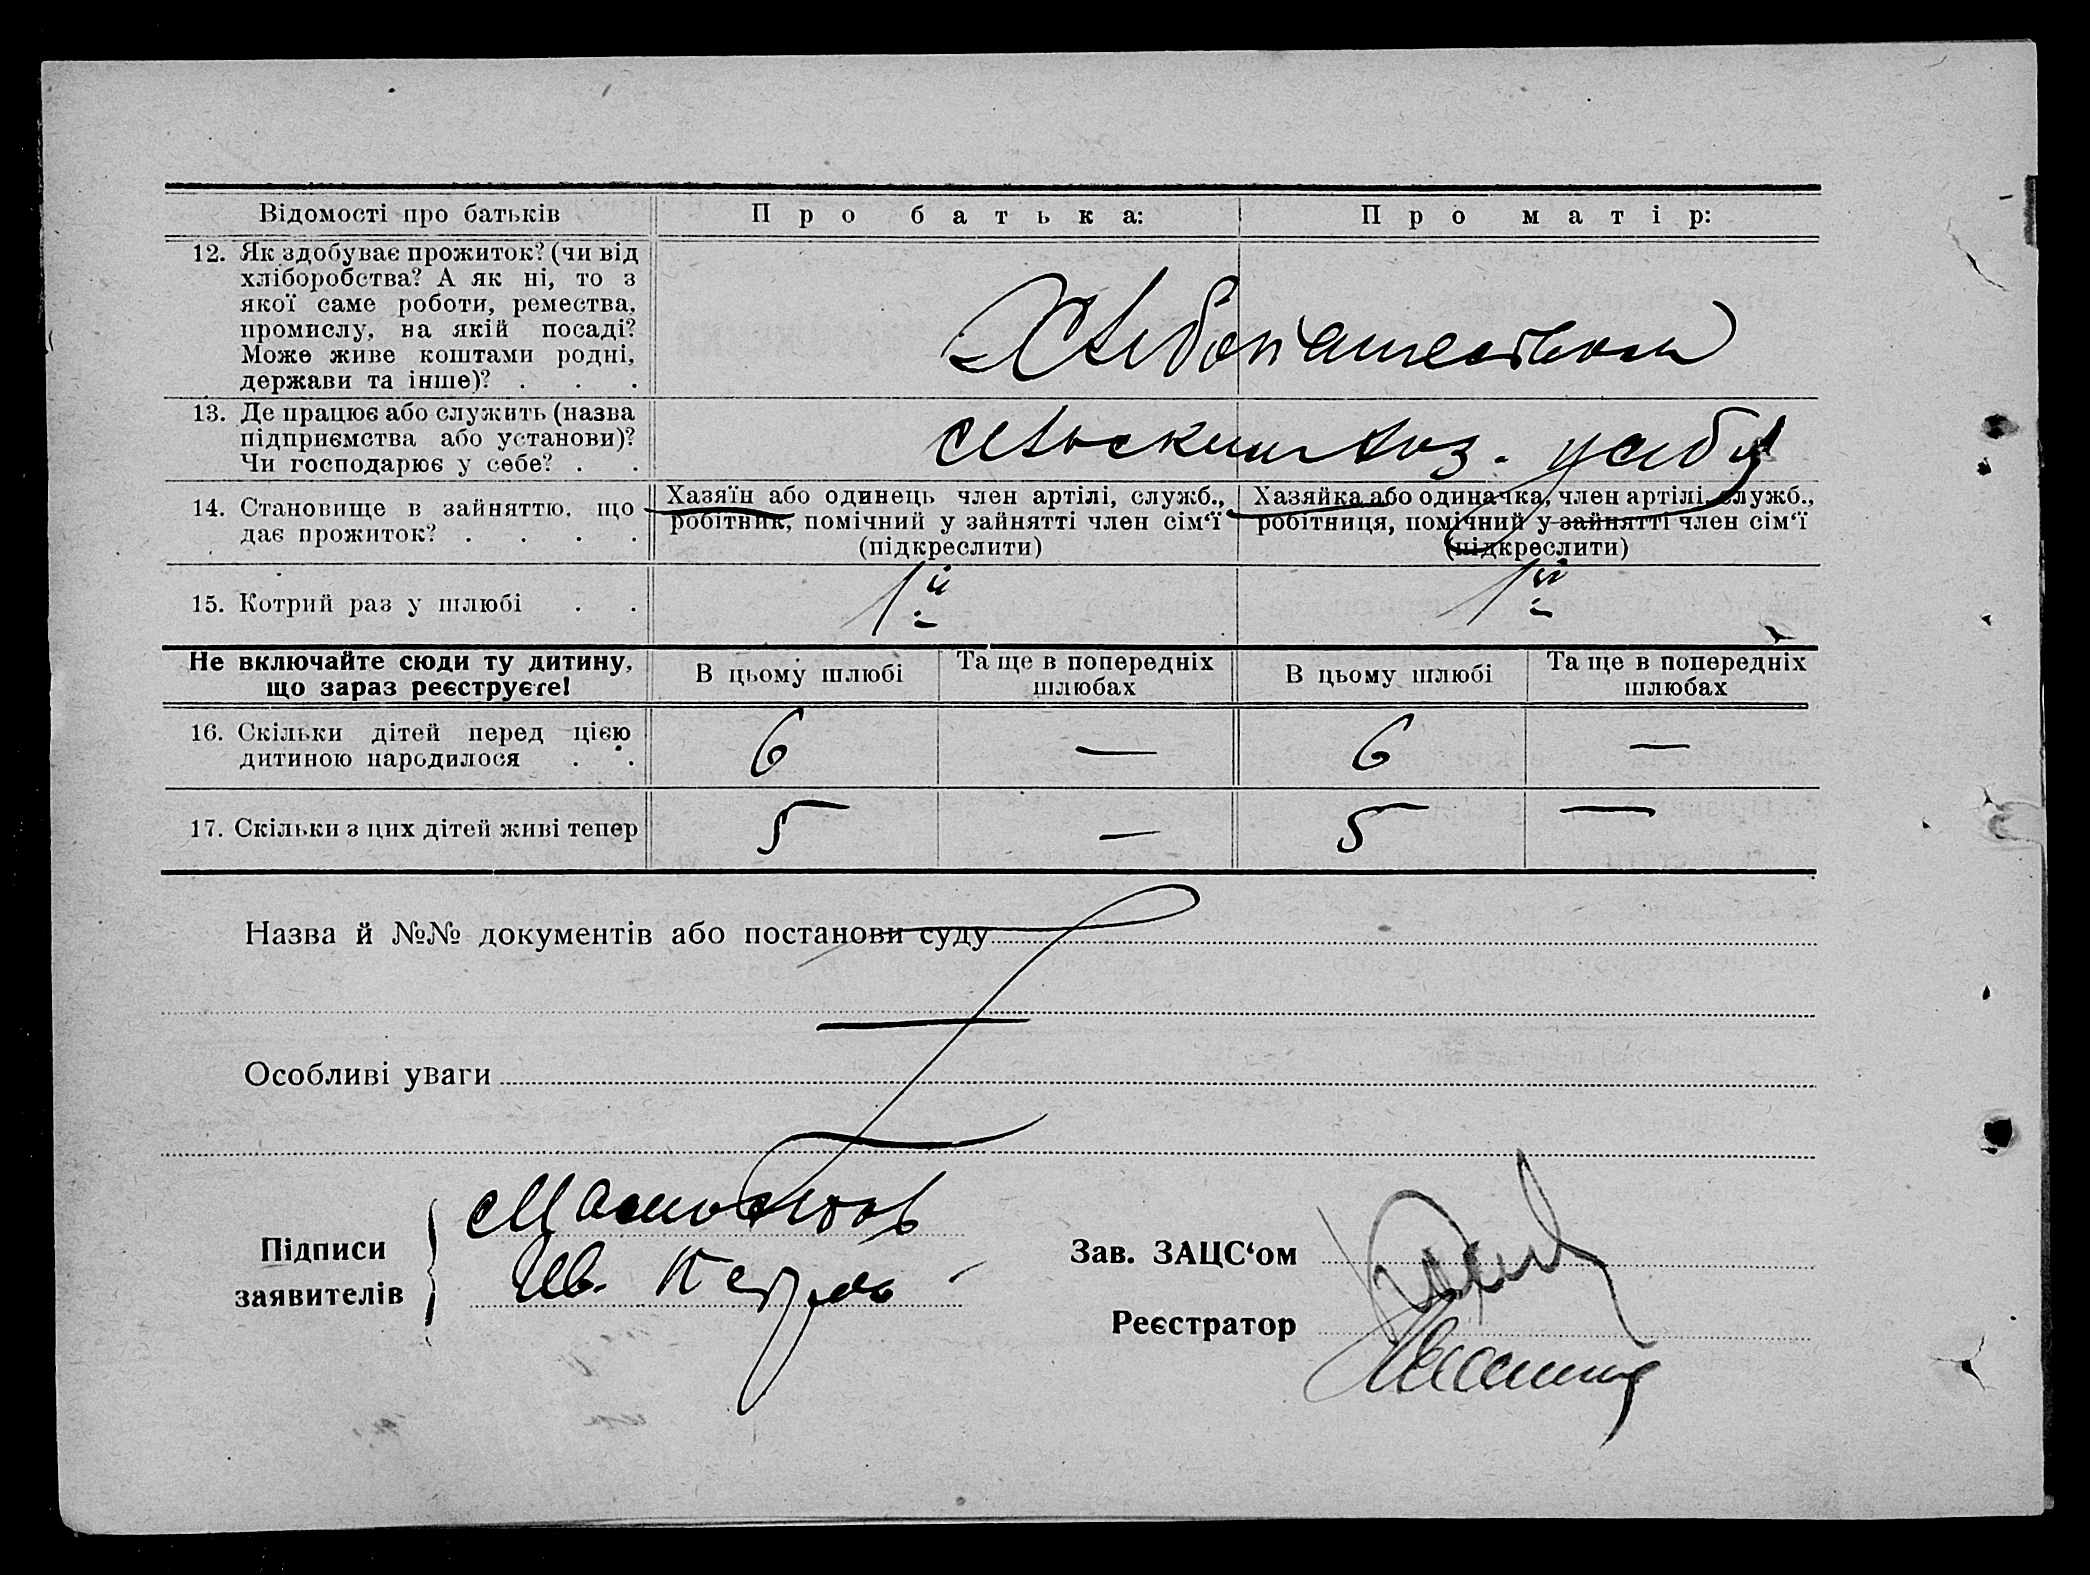 Відомості про батьків
Про батька:
Про матір:
12. Як здобуває прожиток? (чи від
хліборобства? А як ні, то з
якої саме роботи, ремества,
промислу, на якій посаді?
Може живе коштами родні,
держави та інше)? . . .
Хлебопашеством
13. Де працює або служить (назва
підприємства або установи)?
Чи господарює у себе? . .
у себя
14. Становище в зайняттю, що
дає прожиток? . . . .
Хазяїн або одинець член артілі, служб.,
робітник, помічний у зайнятті член сім‘ї
(підкреслити)
Хазяйка або одиначка, член артілі, служб.,
робітниця, помічний у зайнятті член сім‘ї
(підкреслити)
15. Котрий раз у шлюбі . .
1й
1й
Не включайте сюди ту дитину,
що зараз реєструєте!
В цьому шлюбі
Та ще в попередніх
шлюбах
В цьому шлюбі
Та ще в попередніх
шлюбах
16. Скільки дітей перед цією
дитиною народилося . .
6
—
6
—
17. Скільки з цих дітей живі тепер
5
—
5
—
Назва й №№ документів або постанови суду
Особливі уваги
Підписи
заявителів
Ив.
Зав. ЗАЦС‘ом
Реєстратор